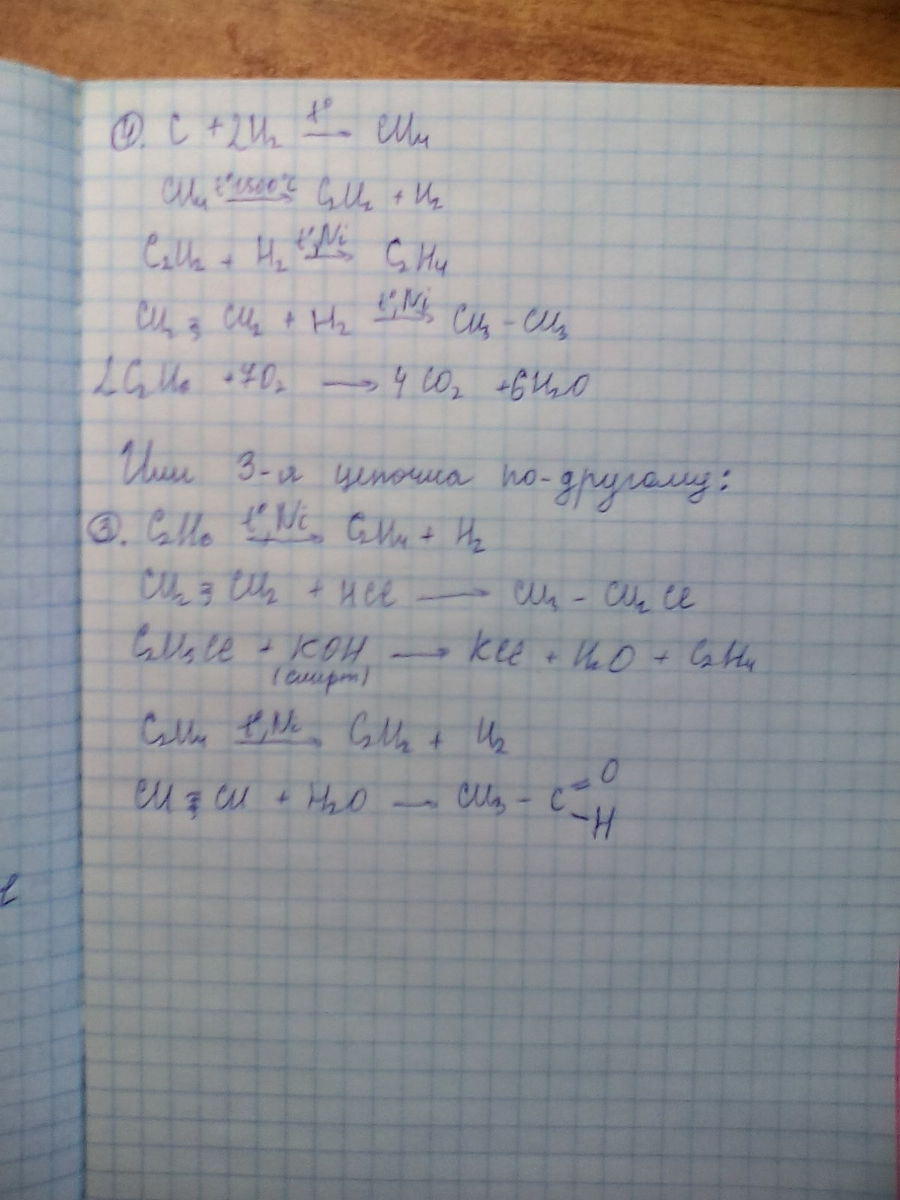 ④. C + 2H₂ t°→ CH₄
CH₄ t°1500°C→ C₂H₂ + H₂
C₂H₂ + H₂ t°,Ni→ C₂H₄
CH₂ = CH₂ + H₂ t°,Ni→ CH₃ - CH₃
2C₂H₆ + 7O₂ → 4CO₂ + 6H₂O
Или 3-я цепочка по-другому:
③. C₂H₆ t°,Ni→ C₂H₄ + H₂
CH₂ = CH₂ + HCl → CH₃ - CH₂Cl
C₂H₅Cl + KOH → KCl + H₂O + C₂H₄
(спирт)
C₂H₄ t°,Ni→ C₂H₂ + H₂
CH ≡ CH + H₂O → CH₃ - C = O
- H